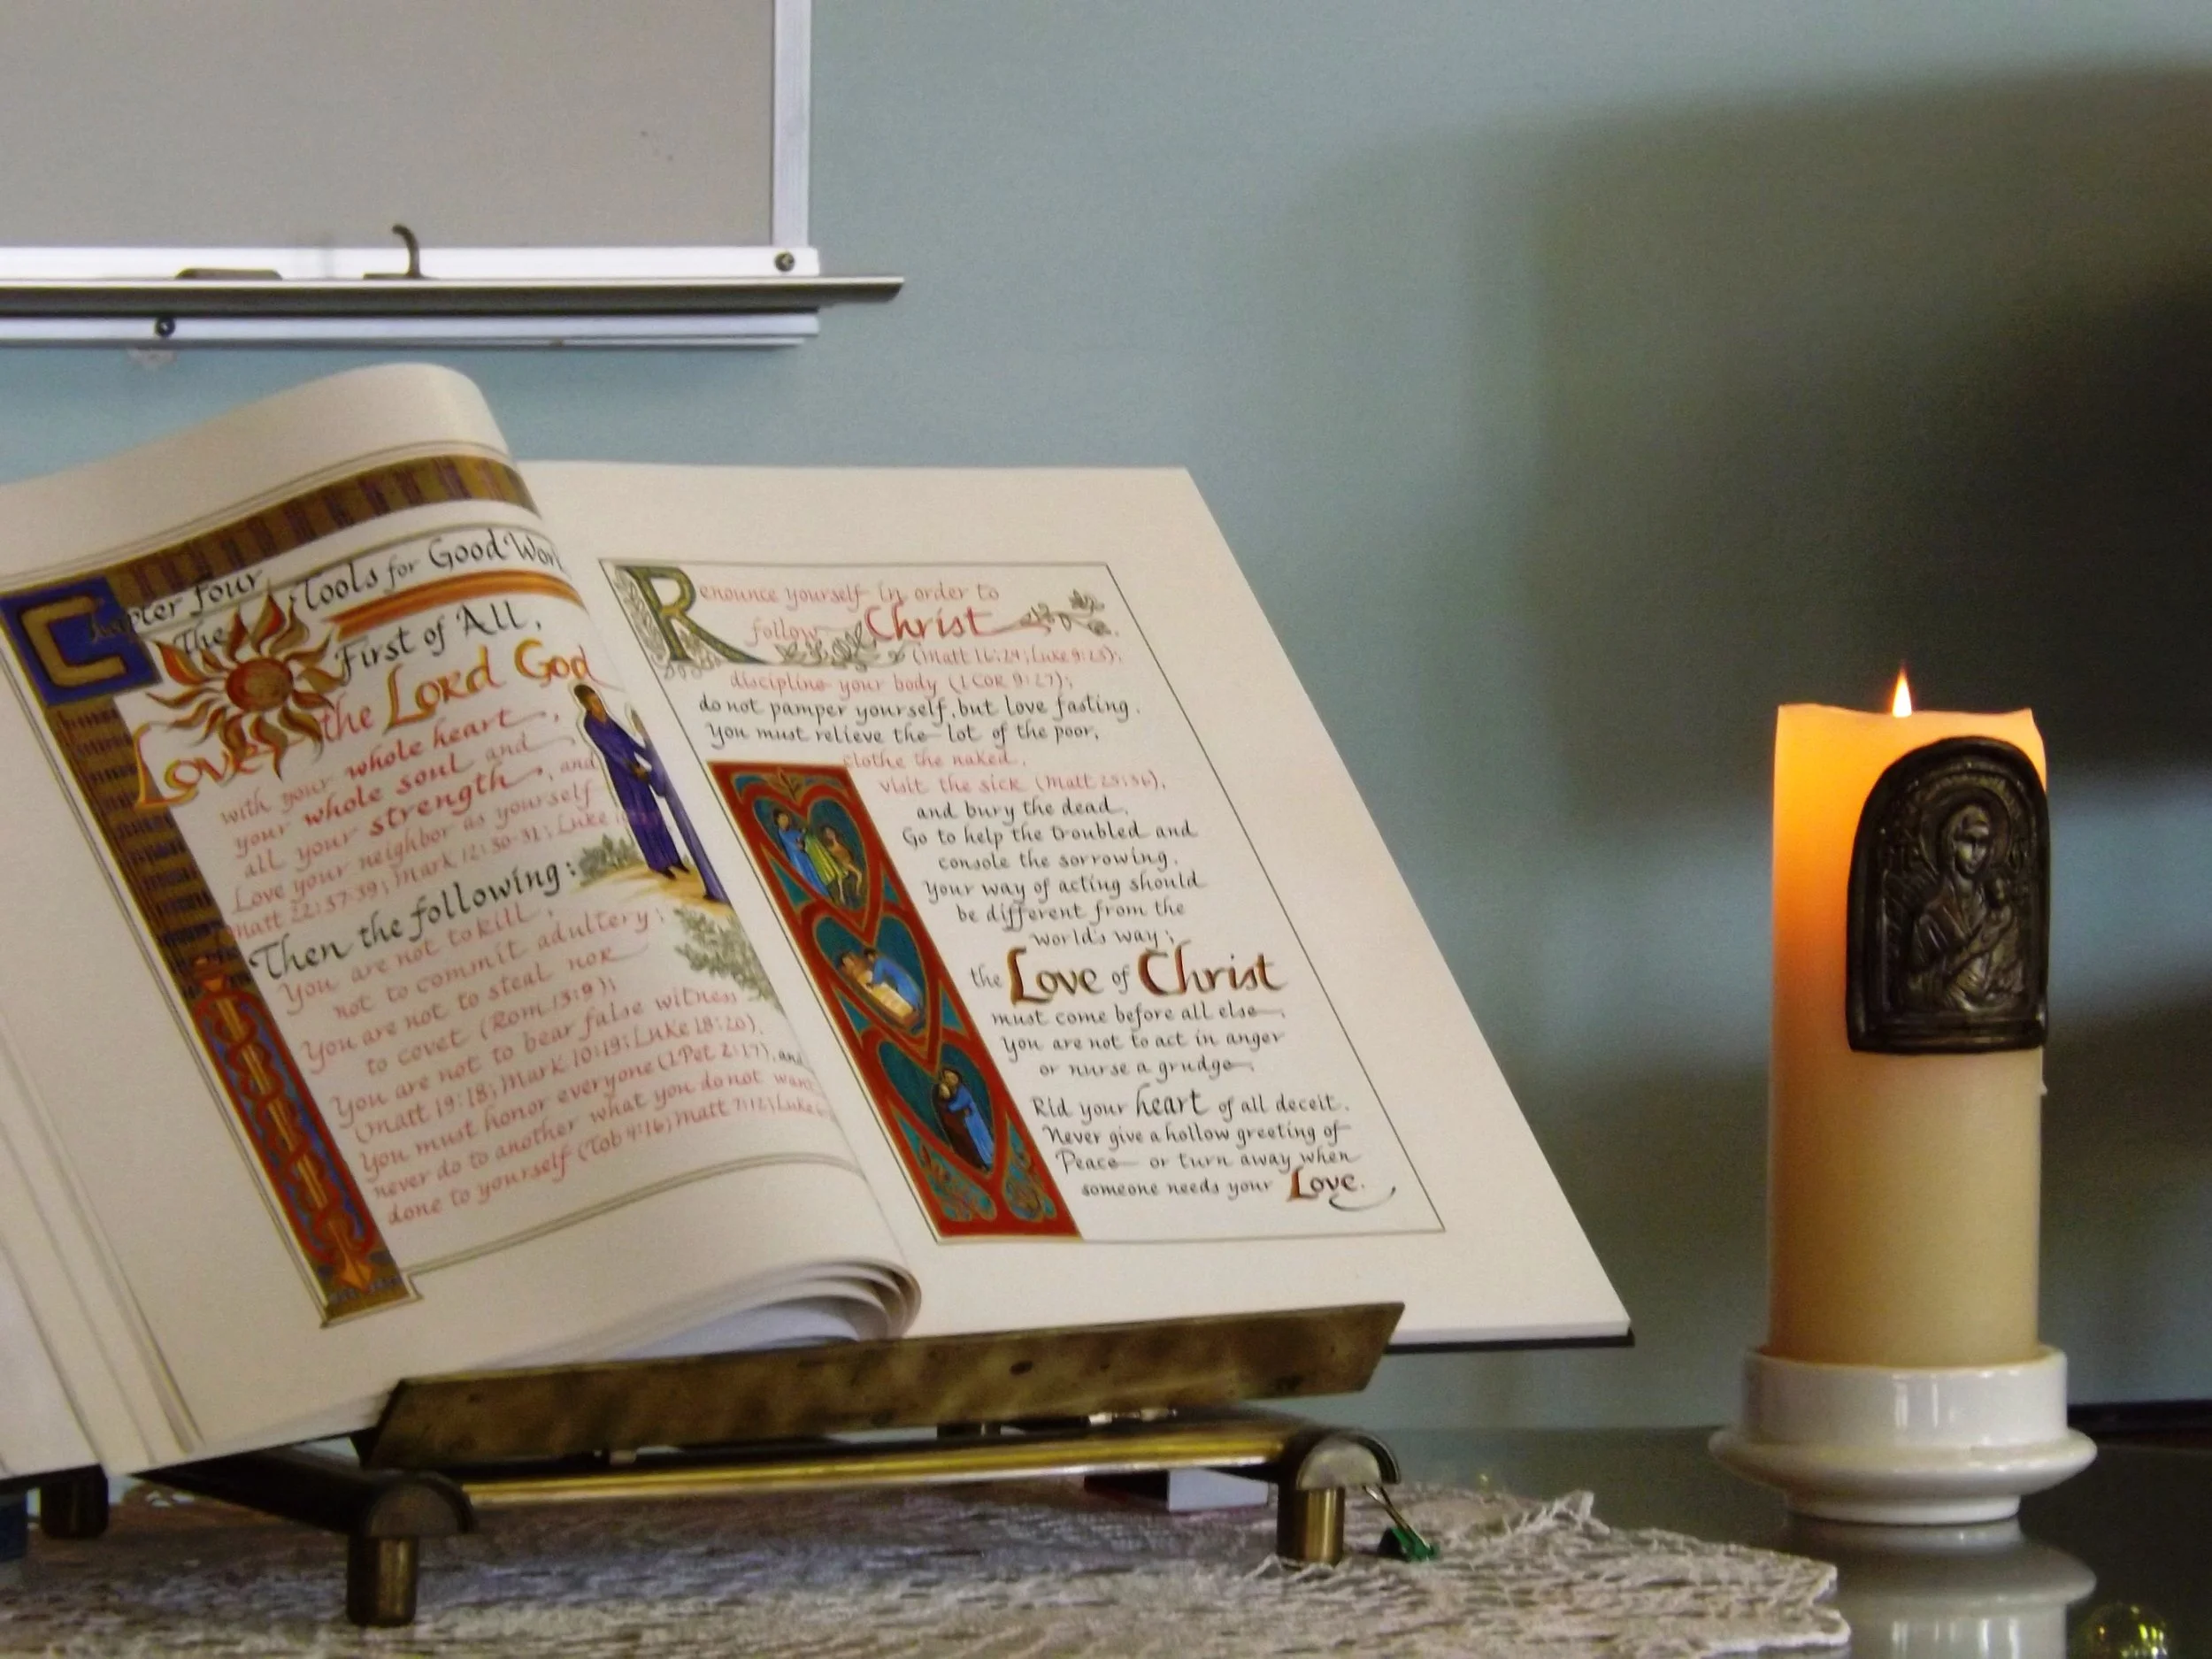 Chapter Four
The Tools for Good
First of All,
Love the Lord God
with your whole heart,
your whole soul and
all your strength, and
Love your neighbor as yourself
Matt 22:37-39; Mark 12:30-31; Luke
Then the following:
You are not to kill,
not to commit adultery;
You are not to steal nor
to covet (Rom 13:9);
You are not to bear false witness
(Matt 19:18; Mark 10:19; Luke 18:20).
You must honor everyone (1 Pet 2:17), and
never do to another what you do not want
done to yourself (Tob 4:16; Matt 7:12; Luke
Renounce yourself in order to
follow Christ
(Matt 16:24; Luke 9:23);
discipline your body (1 Cor 9:27);
do not pamper yourself, but love fasting.
You must relieve the lot of the poor,
clothe the naked,
visit the sick (Matt 25:36),
and bury the dead.
Go to help the troubled and
console the sorrowing.
Your way of acting should
be different from the
world's way;
the Love of Christ
must come before all else.
You are not to act in anger
or nurse a grudge.
Rid your heart of all deceit.
Never give a hollow greeting of
Peace or turn away when
someone needs your Love.